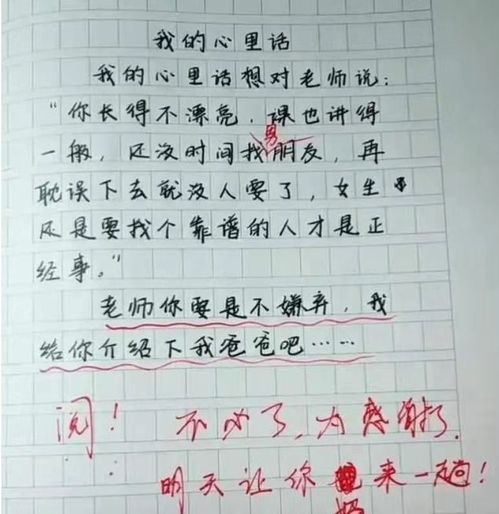 我的心里话
我的心里话想对老师说:
"你长得不漂亮,课也讲得
一般,还没时间找男朋友,再
耽误下去就没人要了,女生
还是要找个靠谱的人才是正
经事。"
老师你要是不嫌弃,我
给你介绍下我爸爸吧……
阅! 不必了,为感情打了
明天让你 来一趟!
妈